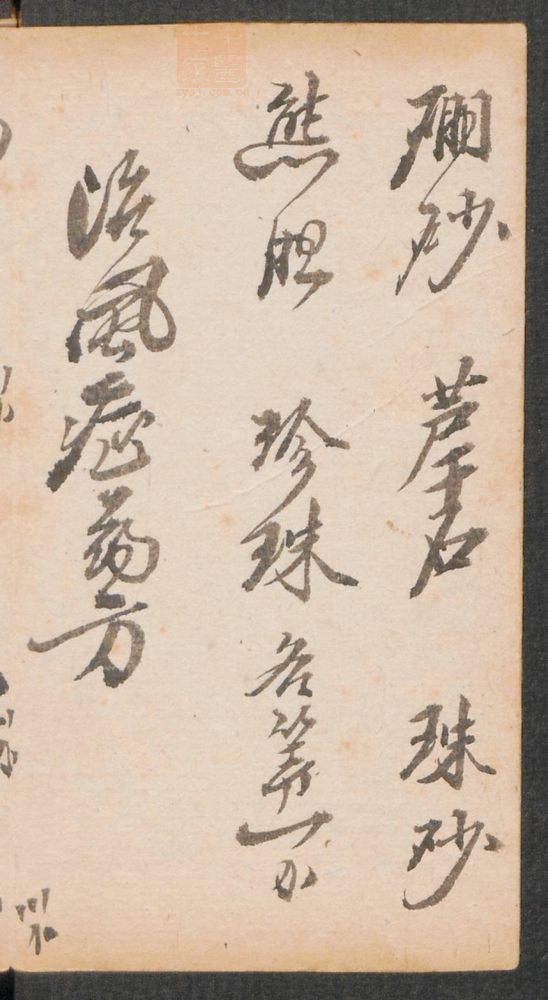 硼砂 芦干石 珠砂
熊胆 珍珠 各等一分
治风症药方